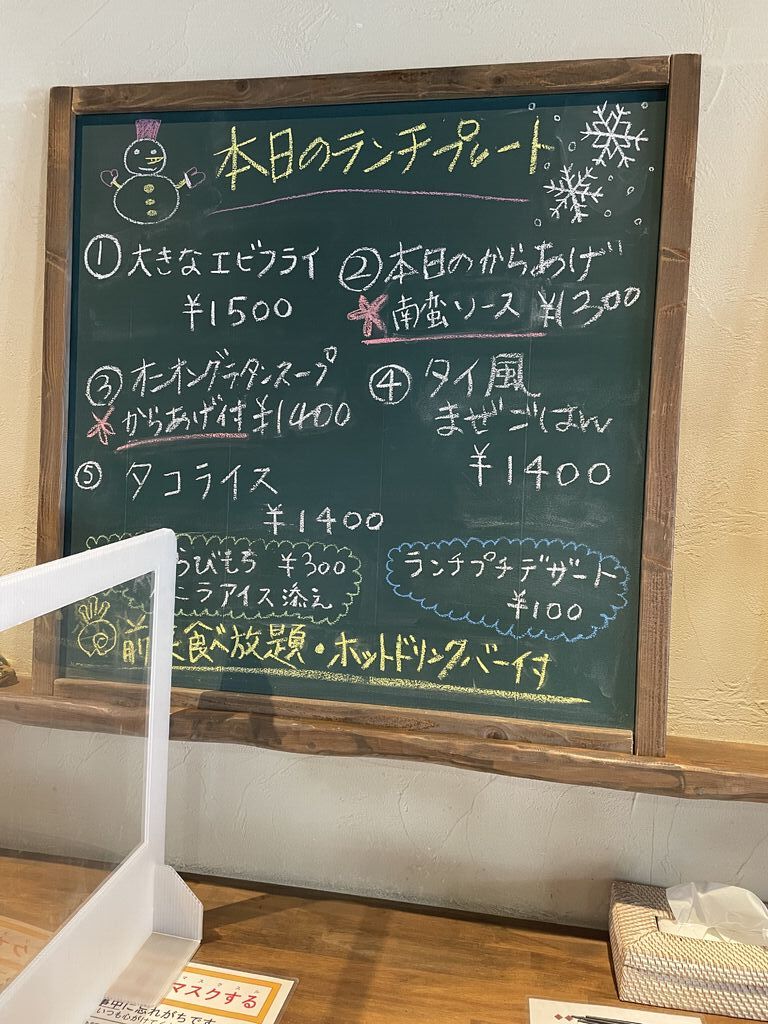 本日のランチプレート
① 大きなエビフライ
¥1500
② 本日のからあげ
南蛮ソース ¥1300
③ オニオングラタンスープ
からあげ付 ¥1400
④ タイ風
まぜごはん
¥1400
⑤ タコライス
¥1400
らびもち ¥300
ニラアイス添え
ランチプチデザート
¥100
前菜食べ放題・ホットドリンクバー付
マスクする
事中に忘れがちです
いつも心がけて